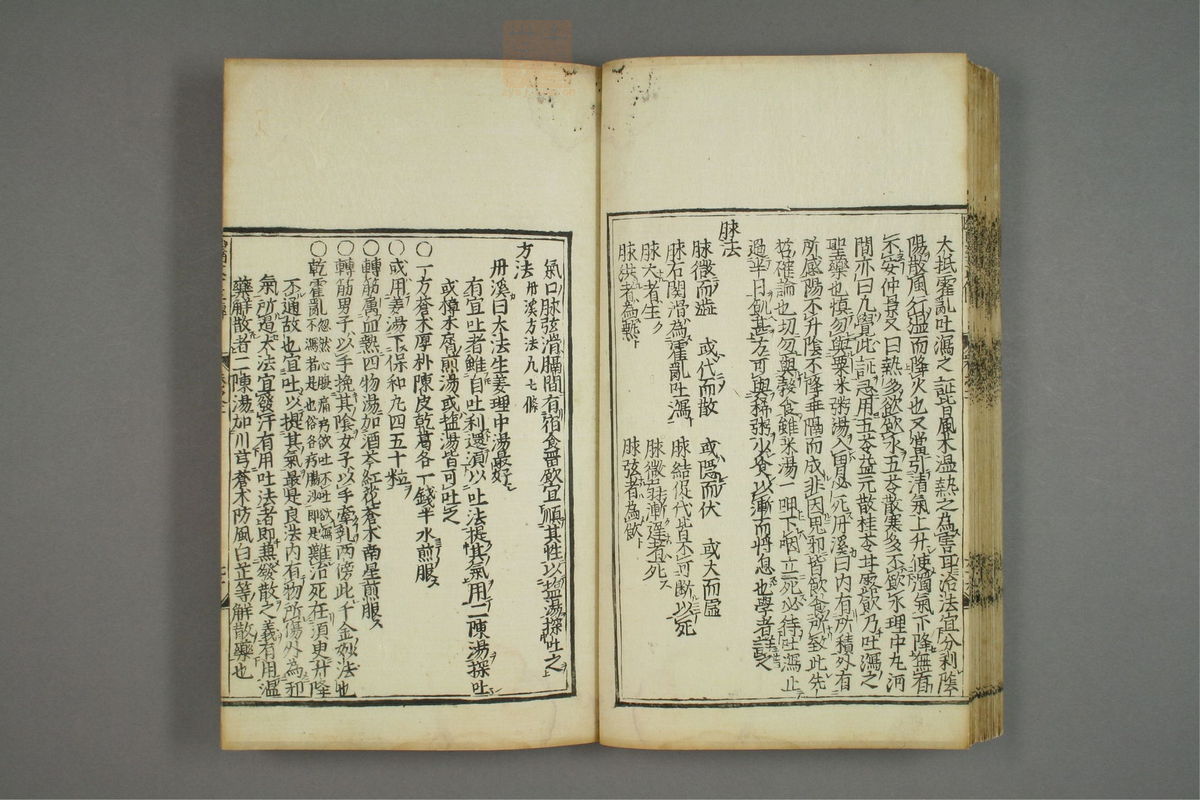 大抵霍亂吐瀉之証皆風木溫熱之為害耳治法宜分利陰
陽散風行溫而降火也又當引清氣上升使濁氣下降無有
不安仲景又曰熱多欲飲水五苓散寒多不飲水理中丸河
間亦曰九覺此証急用五苓益元散桂苓甘露飲乃吐瀉之
聖藥也慎勿與粟米粥湯入胃必死丹溪曰內有所積外有
所感陽不升陰不降乖隔而成非因鬼邪皆飲食所致此先
哲確論也切勿與穀食雖米湯一呷下咽立死必待吐瀉止
過半日飢甚方可與稀粥少食以漸而將息也學者詳之
脉法
脉微而澁 或代而散 或隱而伏 或大而虛
脉右関滑為霍亂吐瀉 脉結促代皆不可斷以死
脉大者生 脉微漸遲者死
脉洪者為熱 脉弦者為飲
氣口脉弦滑膈間有宿食留飲宜順其性以塩湯探吐之
方法 丹溪方法凡七條
丹溪曰大法生姜理中湯最好
有宜吐者雖自吐利還須以吐法提其氣用二陳湯探吐
或樟木屑煎湯或塩湯皆可吐之
〇一方蒼木厚朴陳皮乾葛各一錢半水煎服
〇或用姜湯下保和丸四五十粒
〇轉筋屬血熱四物湯加酒芩紅花蒼木南星煎服
〇轉筋男子以手挽其陰女子以手牽乳兩傍此千金妙法也
〇乾霍亂忽然心腹痛欲吐不吐欲瀉不瀉者是也俗名痧腸沙即是難治死在須臾升降
不通故也宜吐以提其氣最是良法內有物所傷外為邪
氣所遏大法宜發汗有用吐法者即兼發散之義有用溫
藥解散者二陳湯加川芎蒼木防風白芷等解散藥也